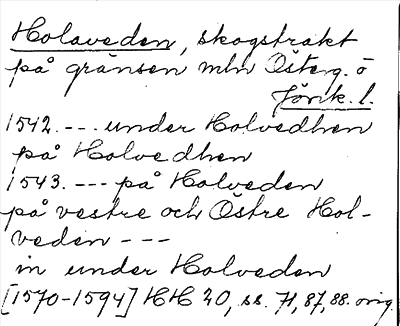 Holaveden, skogstrakt
på gränsen mln Österg. o
Jönk. l.
1542. --- under Holvedhen
på Holvedhen
1543. --- på Holveden
på vestre och Östre Hol-
veden ---
in under Holveden
[1570-1594] HH 20, ss. 71, 87, 88. orig.